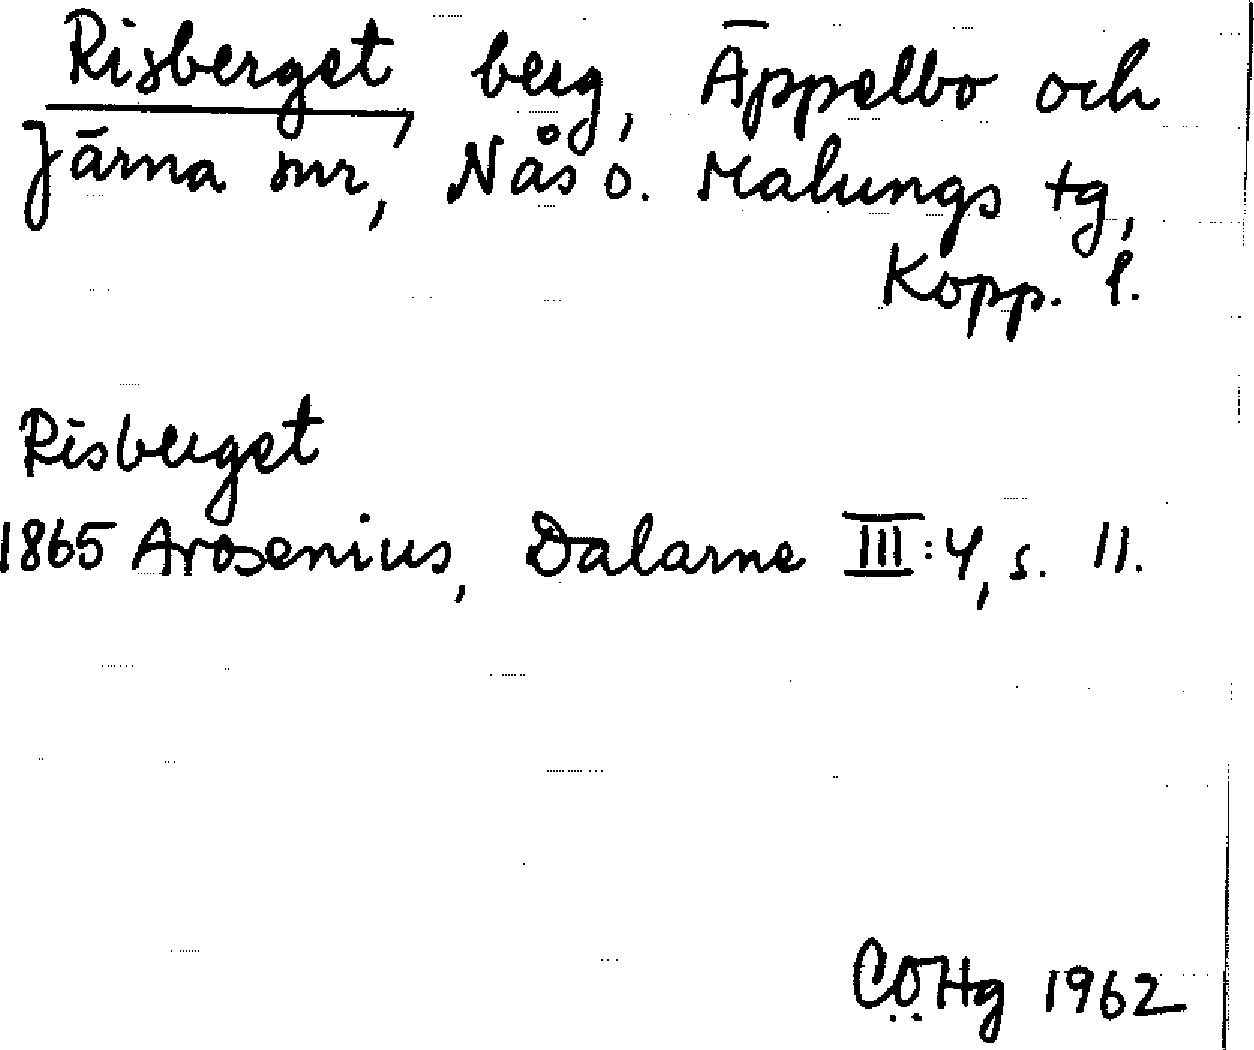 Risberget, berg, Äppelbo och
Järna snr, Nås o. Malungs tg,
Kopp. l.
Risberget
1865 Arosenius, Dalarne III:4, s. 11.
CÖHg 1962